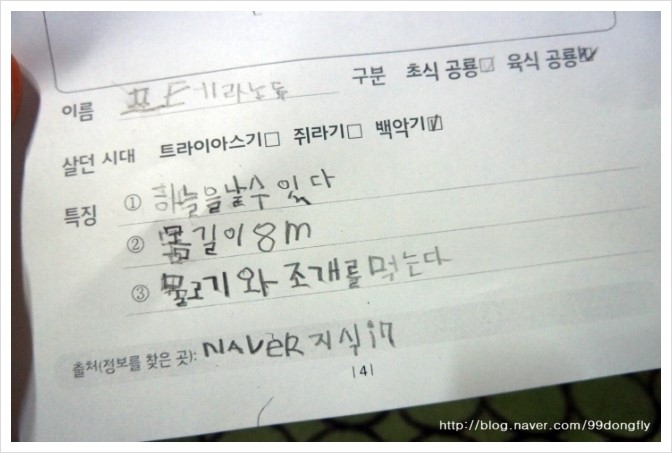 이름 구분 초식 공룡□ 육식 공룡☑
살던 시대 트라이아스기□ 쥐라기□ 백악기☑
특징 ① 하늘을 날수 있다
② 몸길이 8m
③ 물고기와 조개를 먹는다
출처(정보를 찾은 곳): NAVeR 지식in
141
http://blog.naver.com/99dongfly